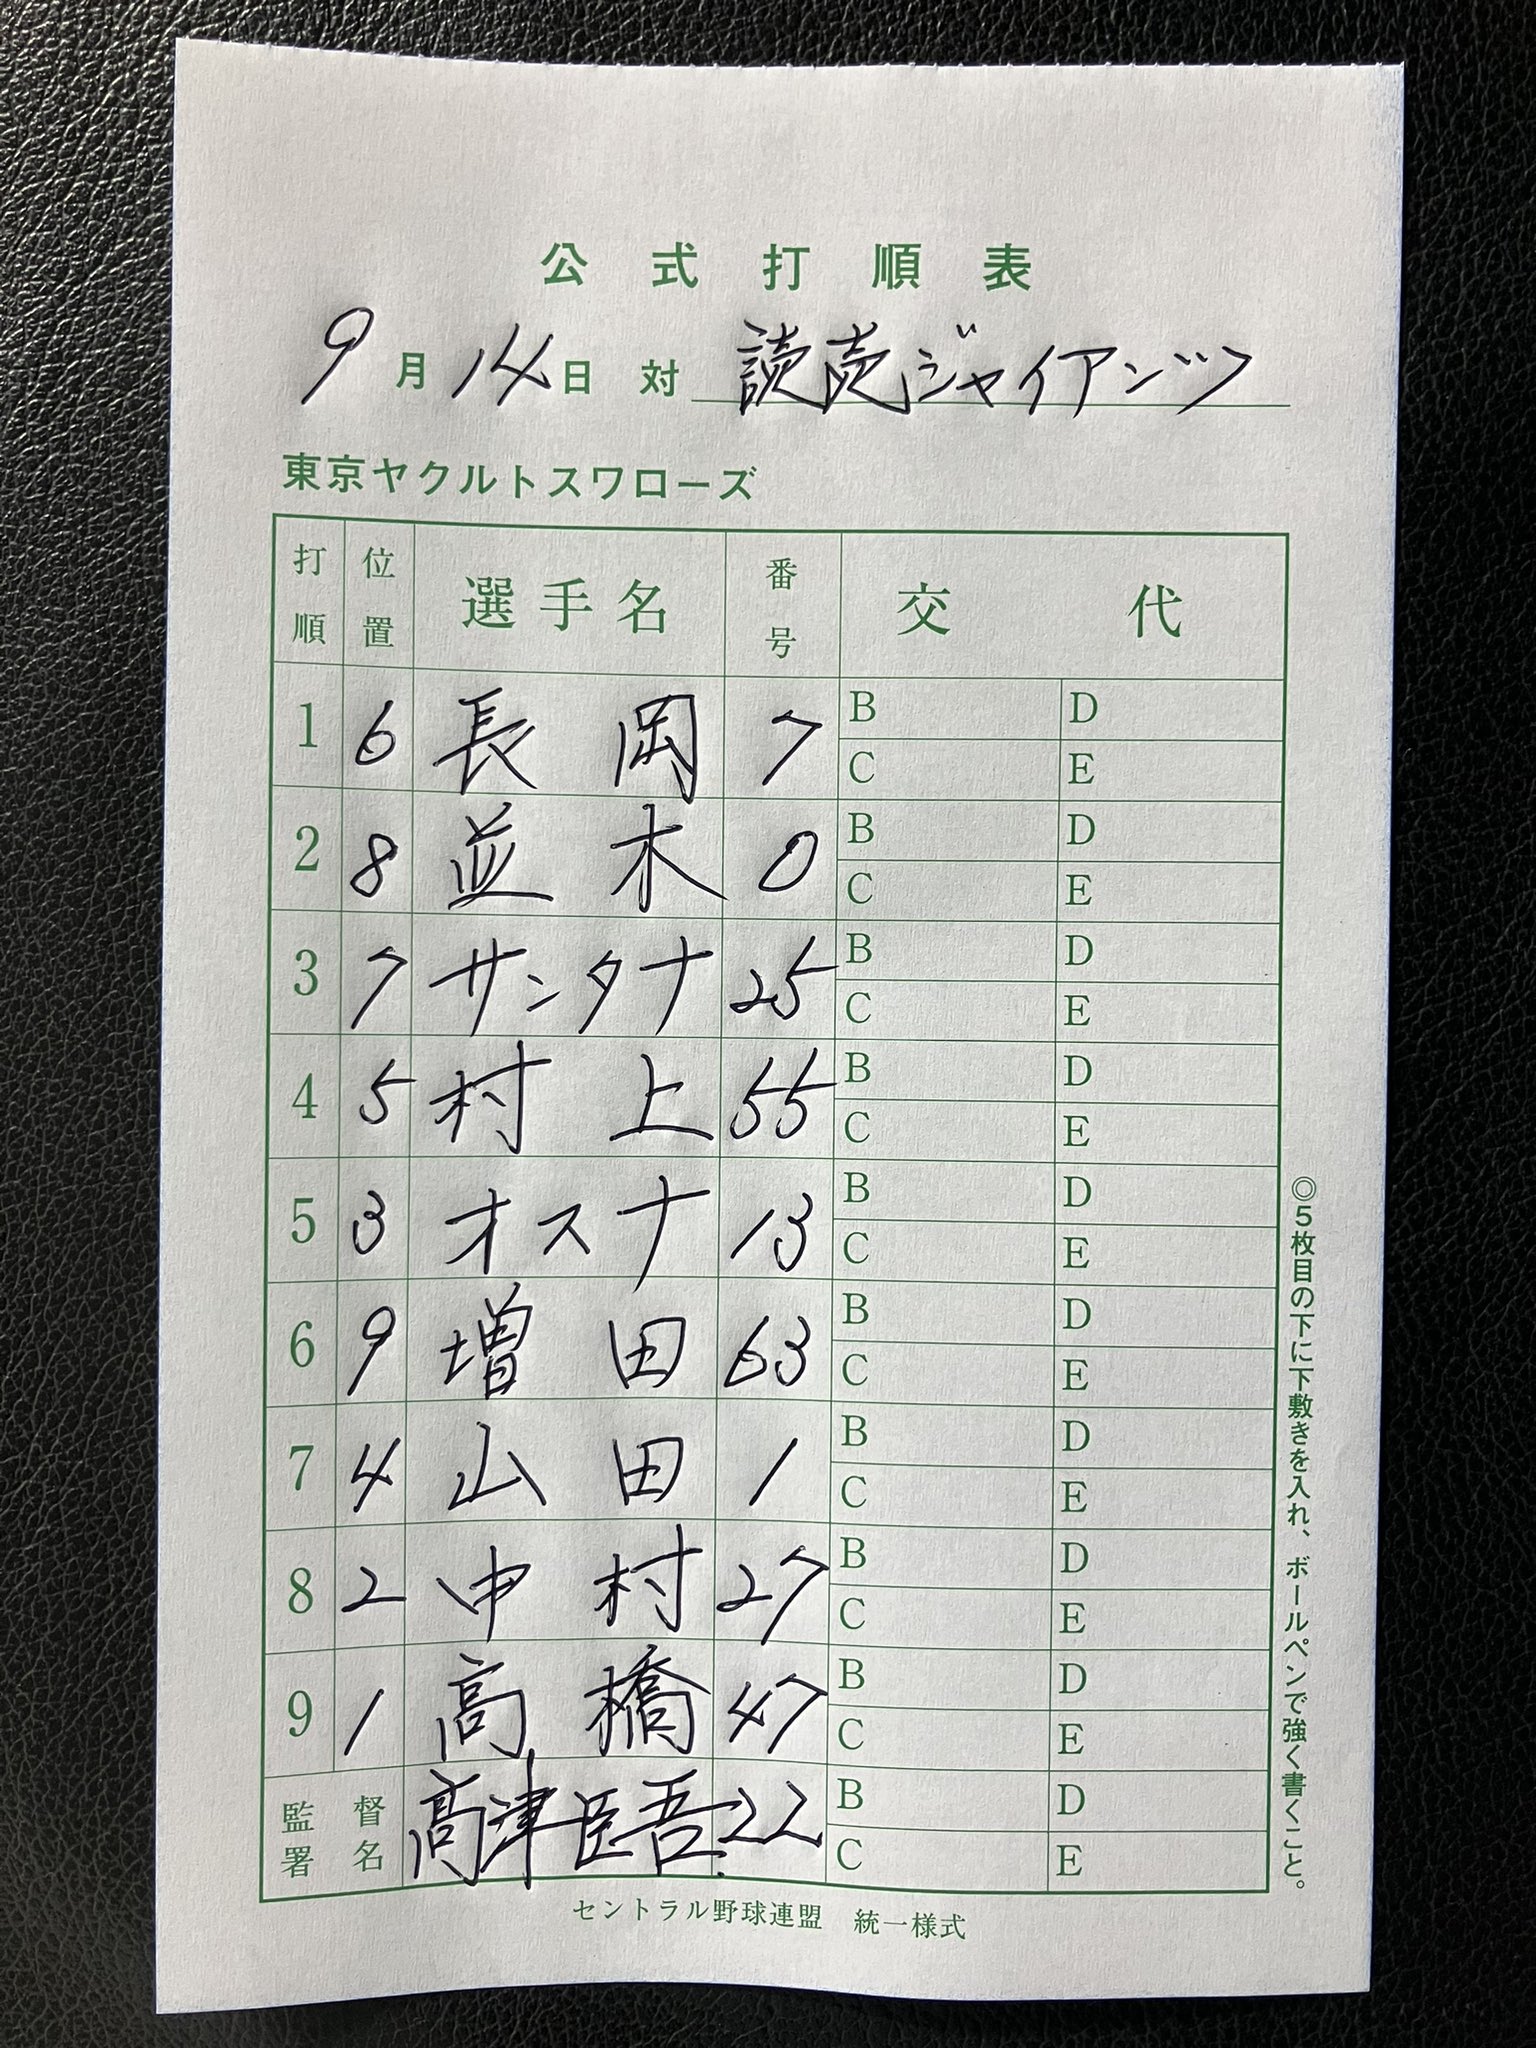 公式打順表
9月14日 対 読売ジャイアンツ
東京ヤクルトスワローズ
打順 位置 選手名 番号 交代
1 6 長岡 7 B D
C E
2 8 並木 0 B D
C E
3 7 サンタナ 25 B D
C E
4 5 村上 55 B D
C E
5 3 オスナ 13 B D
C E
6 9 増田 63 B D
C E
7 4 山田 1 B D
C E
8 2 中村 27 B D
C E
9 1 高橋 47 B D
C E
監督署名 髙津臣吾 22 B D
C E
セントラル野球連盟 統一様式
◎5枚目の下に下敷きを入れ、ボールペンで強く書くこと。